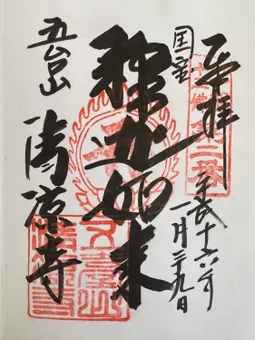 奉拝
平成十六年
一月 九日
国宝
釋迦如来
五台山
清凉寺